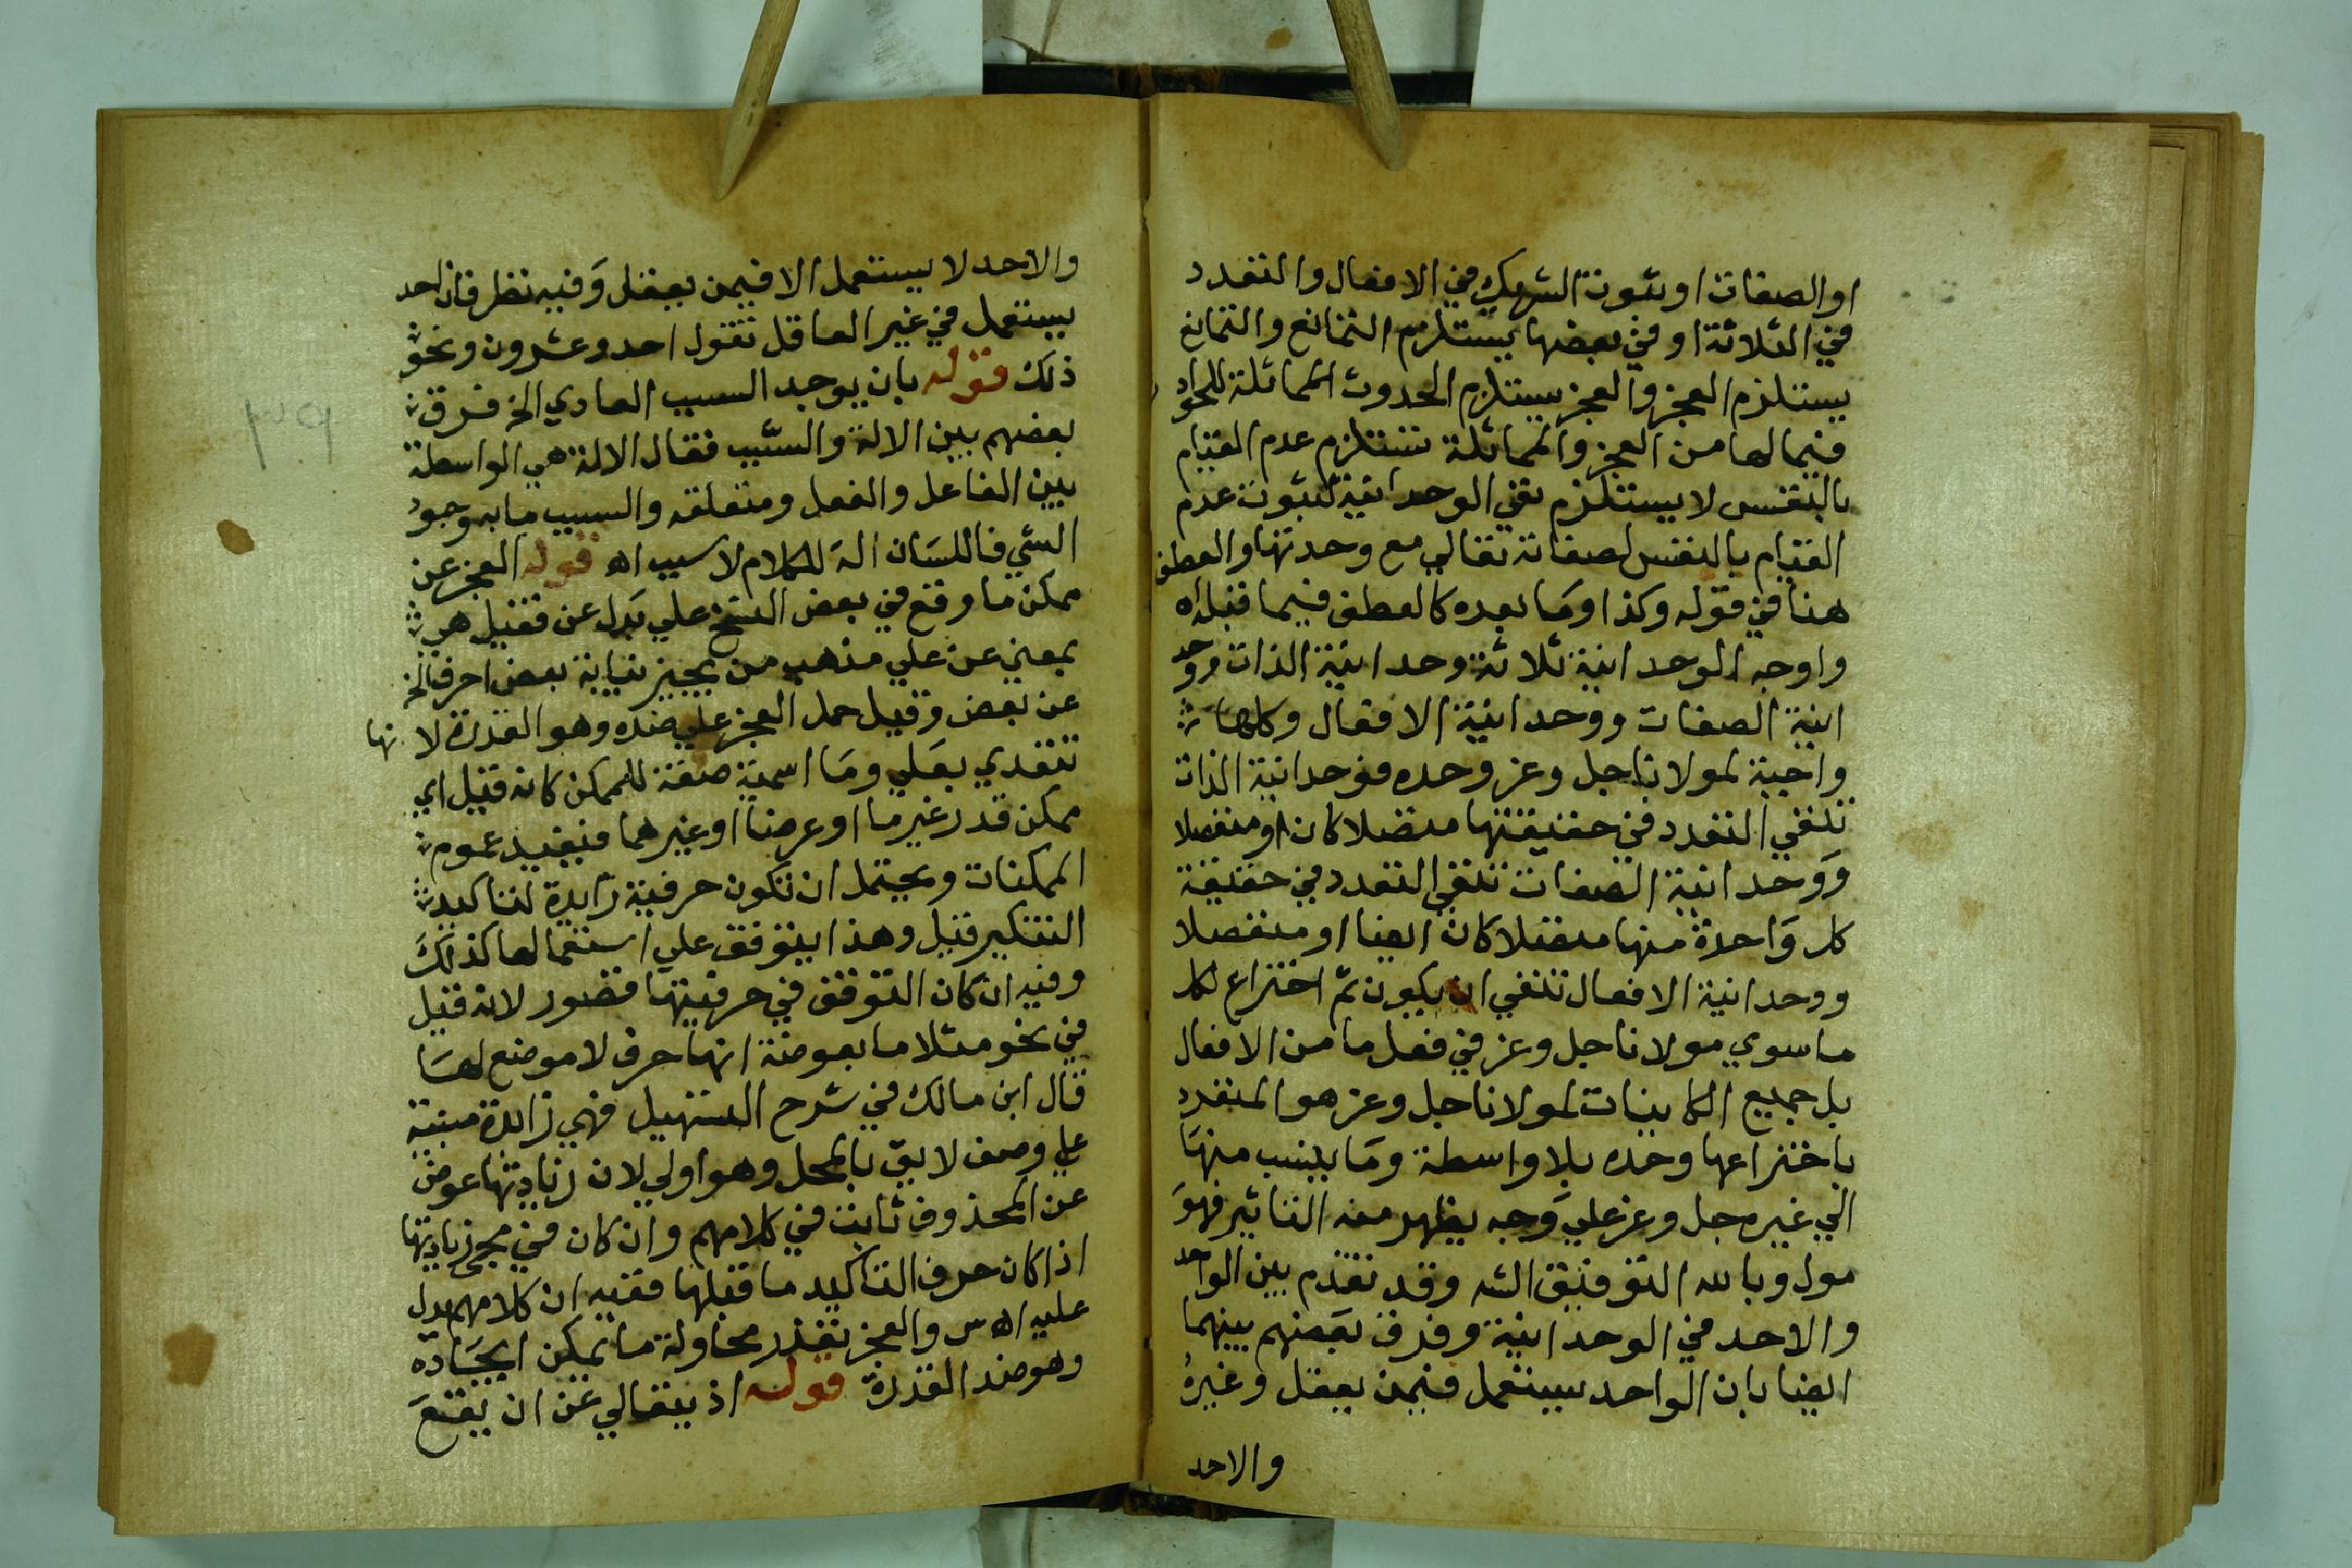 او الصفات او ثبوت الشريك في الافعال والتعدد
في الثلاثة او في بعضها يستلزم التمانع والتمانع
يستلزم العجز والعجز يستلزم الحدوث المماثلة للحواد
فيما لها من العجز والمماثلة تستلزم عدم القيام
بالنفس لا يستلزم نفي الوحدانية لثبوت عدم
القيام بالنفس لصفاته تعالي مع وحدتها والعطف
هنا في قوله وكذا وما بعده كالعطف فيما قبله اه
واوجه الوحدانية ثلاثة وحدانية الذات ووحد
انية الصفات ووحدانية الافعال وكلها
واجبة لمولانا جل وعز وحده فوحدانية الذات
تنفي التعدد في حقيقتها متصلا كان او منفصلا
ووحدانية الصفات تنفي التعدد في حقيقة
كل واحدة منها متصلا كان ايضا او منفصلا
ووحدانية الافعال تنفي ان يكون ثم اختراع لكل
ما سوي مولانا جل وعز في فعل ما من الافعال
بل جميع الكاينات لمولانا جل وعز هو المنفرد
باختراعها وحده بلا واسطة وما ينسب منها
الي غيره جل وعز علي وجه يظهر منه التاثير فهو
مول وبالله التوفيق الشه وقد تقدم بين الواحد
والاحد في الوحدانية وفرق بعضهم بينهما
ايضا بان الواحد يستعمل فيمن يعقل وغيره
والاحد
والاحد لا يستعمل الا فيمن يعقل وفيه نظر فان احد
يستعمل في غير العاقل تقول احد وعشرون ونحو
ذلك قوله بان يوجد السبب العادي الخ فرق
بعضهم بين الالة والسبب فقال الالة هي الواسطة
بين الفاعل والفعل ومتعلقه والسبب ما به وجود
الشي فاللسان الة للكلام لا سبب اه قوله العجز عن
ممكن ما وقع في بعض النسخ علي بدل عن فقيل هي
بمعني عن علي مذهب من يجيز نيابة بعض احرف الخ
عن بعض وقيل حمل العجز علي ضده وهو القدرة لا نها
تتعدي بعلي وما اسمية صفة للممكن كانه قيل اي
ممكن قدر غير ما او عرضا او غيرهما فيفيد عموم
الممكنات ويحتمل ان تكون حرفية زايدة لتاكيد
التنكير قيل وهذا يتوقف علي استعمالها كذلك
وفيه ان كان التوقف في حرفيتها قصور لانه قيل
في نحو مثلا ما بعوضة انها حرف لا موضع لها
قال ابن مالك في شرح التسهيل فهي زائدة مبنية
علي وصف لايق بالمحل وهو اولي لان زيادتها عوض
عن المحذوف ثابت في كلامهم وان كان في مجي زيادتها
اذا كان حرف التاكيد ما قبلها ففيه ان كلامهم يدل
عليه اه س والعجز تعذر محاولة ما يمكن ايجاده
وهو ضد القدرة قوله اذ يتعالي عن ان يقع